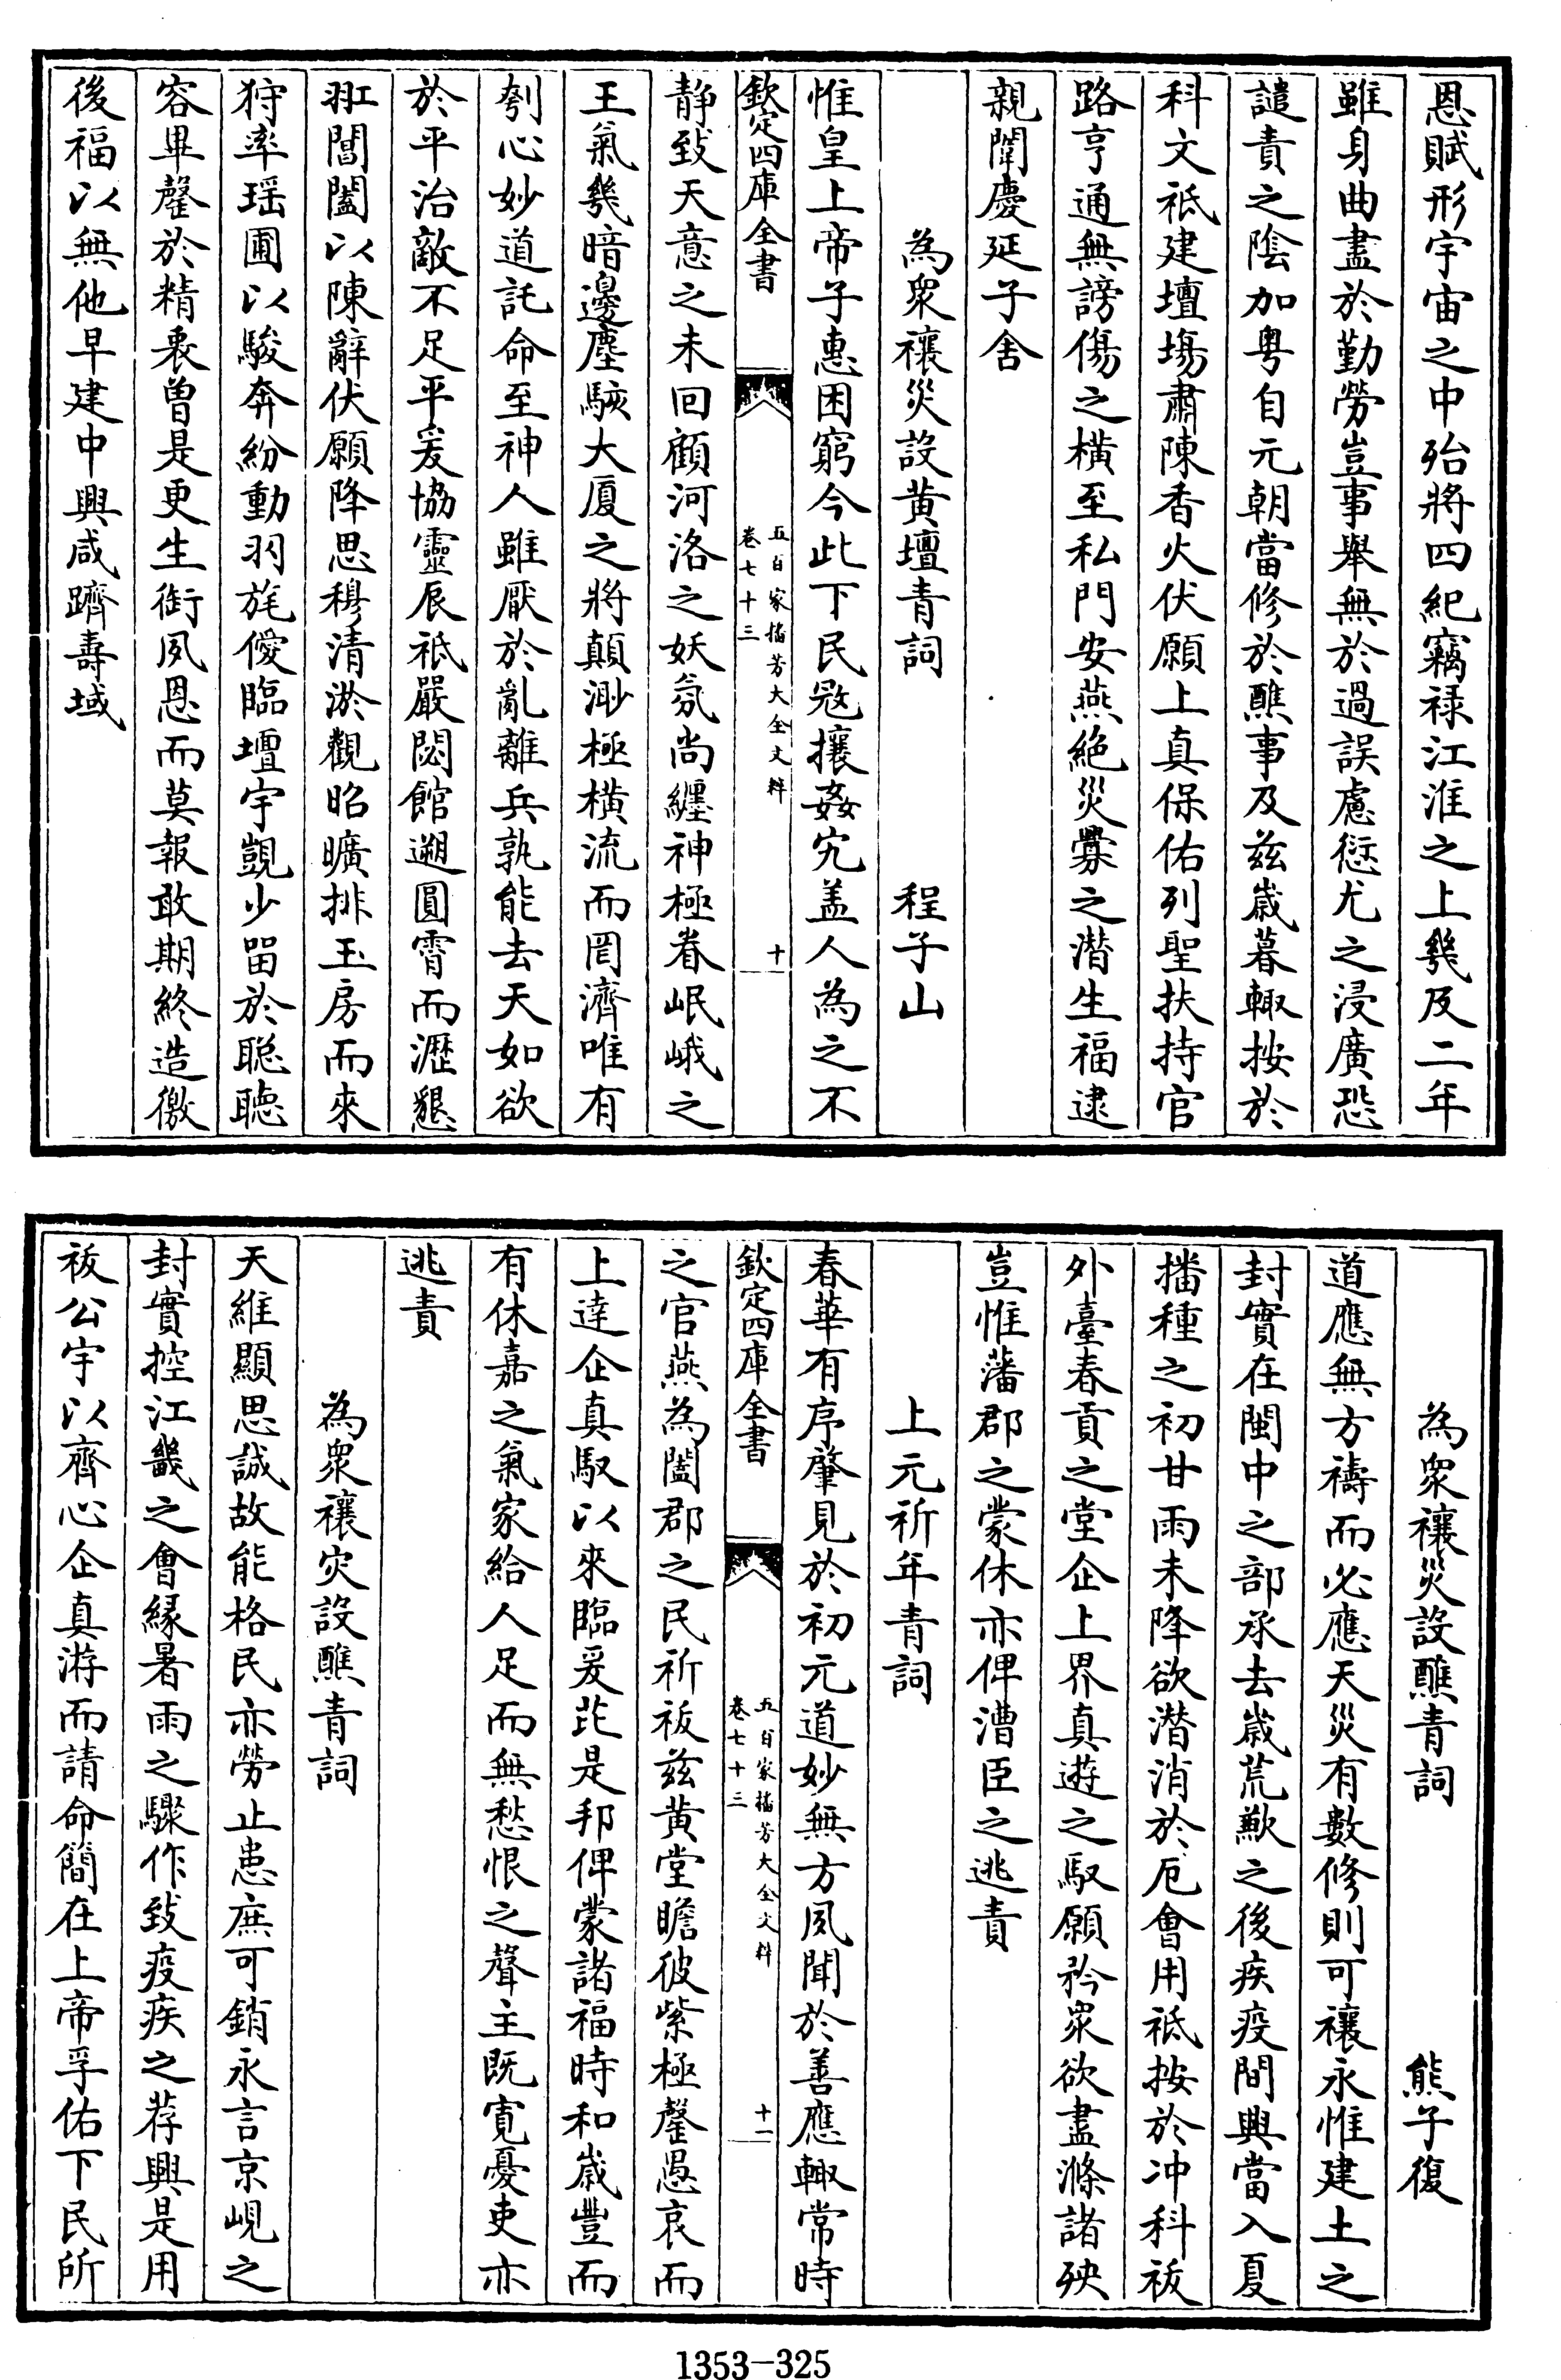 恩賦形宇宙之中殆將四紀竊禄江淮之上幾及二年
雖身曲盡於勤勞豈事舉無於過誤慮愆尤之浸廣恐
譴責之陰加粤自元朝當修於醮事及兹嵗暮輙按於
科文祗建壇場肅陳香火伏願上真保佑列聖扶持官
路亨通無謗傷之横至私門安燕絶災釁之潜生福逮
親闈慶延子舍
為衆禳災設黄壇青詞 程子山
惟皇上帝子惠困窮今此下民㓂攘姦宄盖人為之不
欽定四庫全書
五百家播芳大全文粹
卷七十三
十
静致天意之未回顧河洛之妖氛尚纒神極眷岷峨之
王氣幾暗邊塵駭大厦之將顛渺極横流而罔濟唯有
刳心妙道託命至神人雖厭於亂離兵孰能去天如欲
於平治敵不足平爰協靈辰祗嚴閟館遡圓霄而瀝懇
羾閶闔以陳辭伏願降思穆清淤觀昭曠排玉房而來
狩率瑶圃以駿奔紛動羽旄僾臨壇宇覬少畱於聡聽
容畢罄於精衷曽是更生銜夙恩而莫報敢期終造徼
後福以無他早建中興咸躋壽域
為衆禳災設醮青詞 熊子復
道應無方禱而必應天災有數修則可禳永惟建土之
封實在閩中之部承去嵗荒歉之後疾疫間興當入夏
播種之初甘雨未降欲潜消於厄會用祗按於冲科祓
外臺春貢之堂企上界真遊之馭願矜衆欲盡滌諸殃
豈惟藩郡之蒙休亦俾漕臣之逃責
上元祈年青詞
春華有序肇見於初元道妙無方夙聞於善應輙常時
欽定四庫全書
五百家播芳大全文粹
卷七十三
十一
之官燕為闔郡之民祈祓兹黄堂瞻彼紫極罄愚哀而
上達企真馭以來臨爰芘是邦俾蒙諸福時和嵗豐而
有休嘉之氣家給人足而無愁恨之聲主既寛憂吏亦
逃責
為衆禳灾設醮青詞
天維顯思誠故能格民亦勞止患庶可銷永言京峴之
封實控江畿之會緣暑雨之驟作致疫疾之荐興是用
祓公宇以齊心企真游而請命簡在上帝孚佑下民所
1353-325